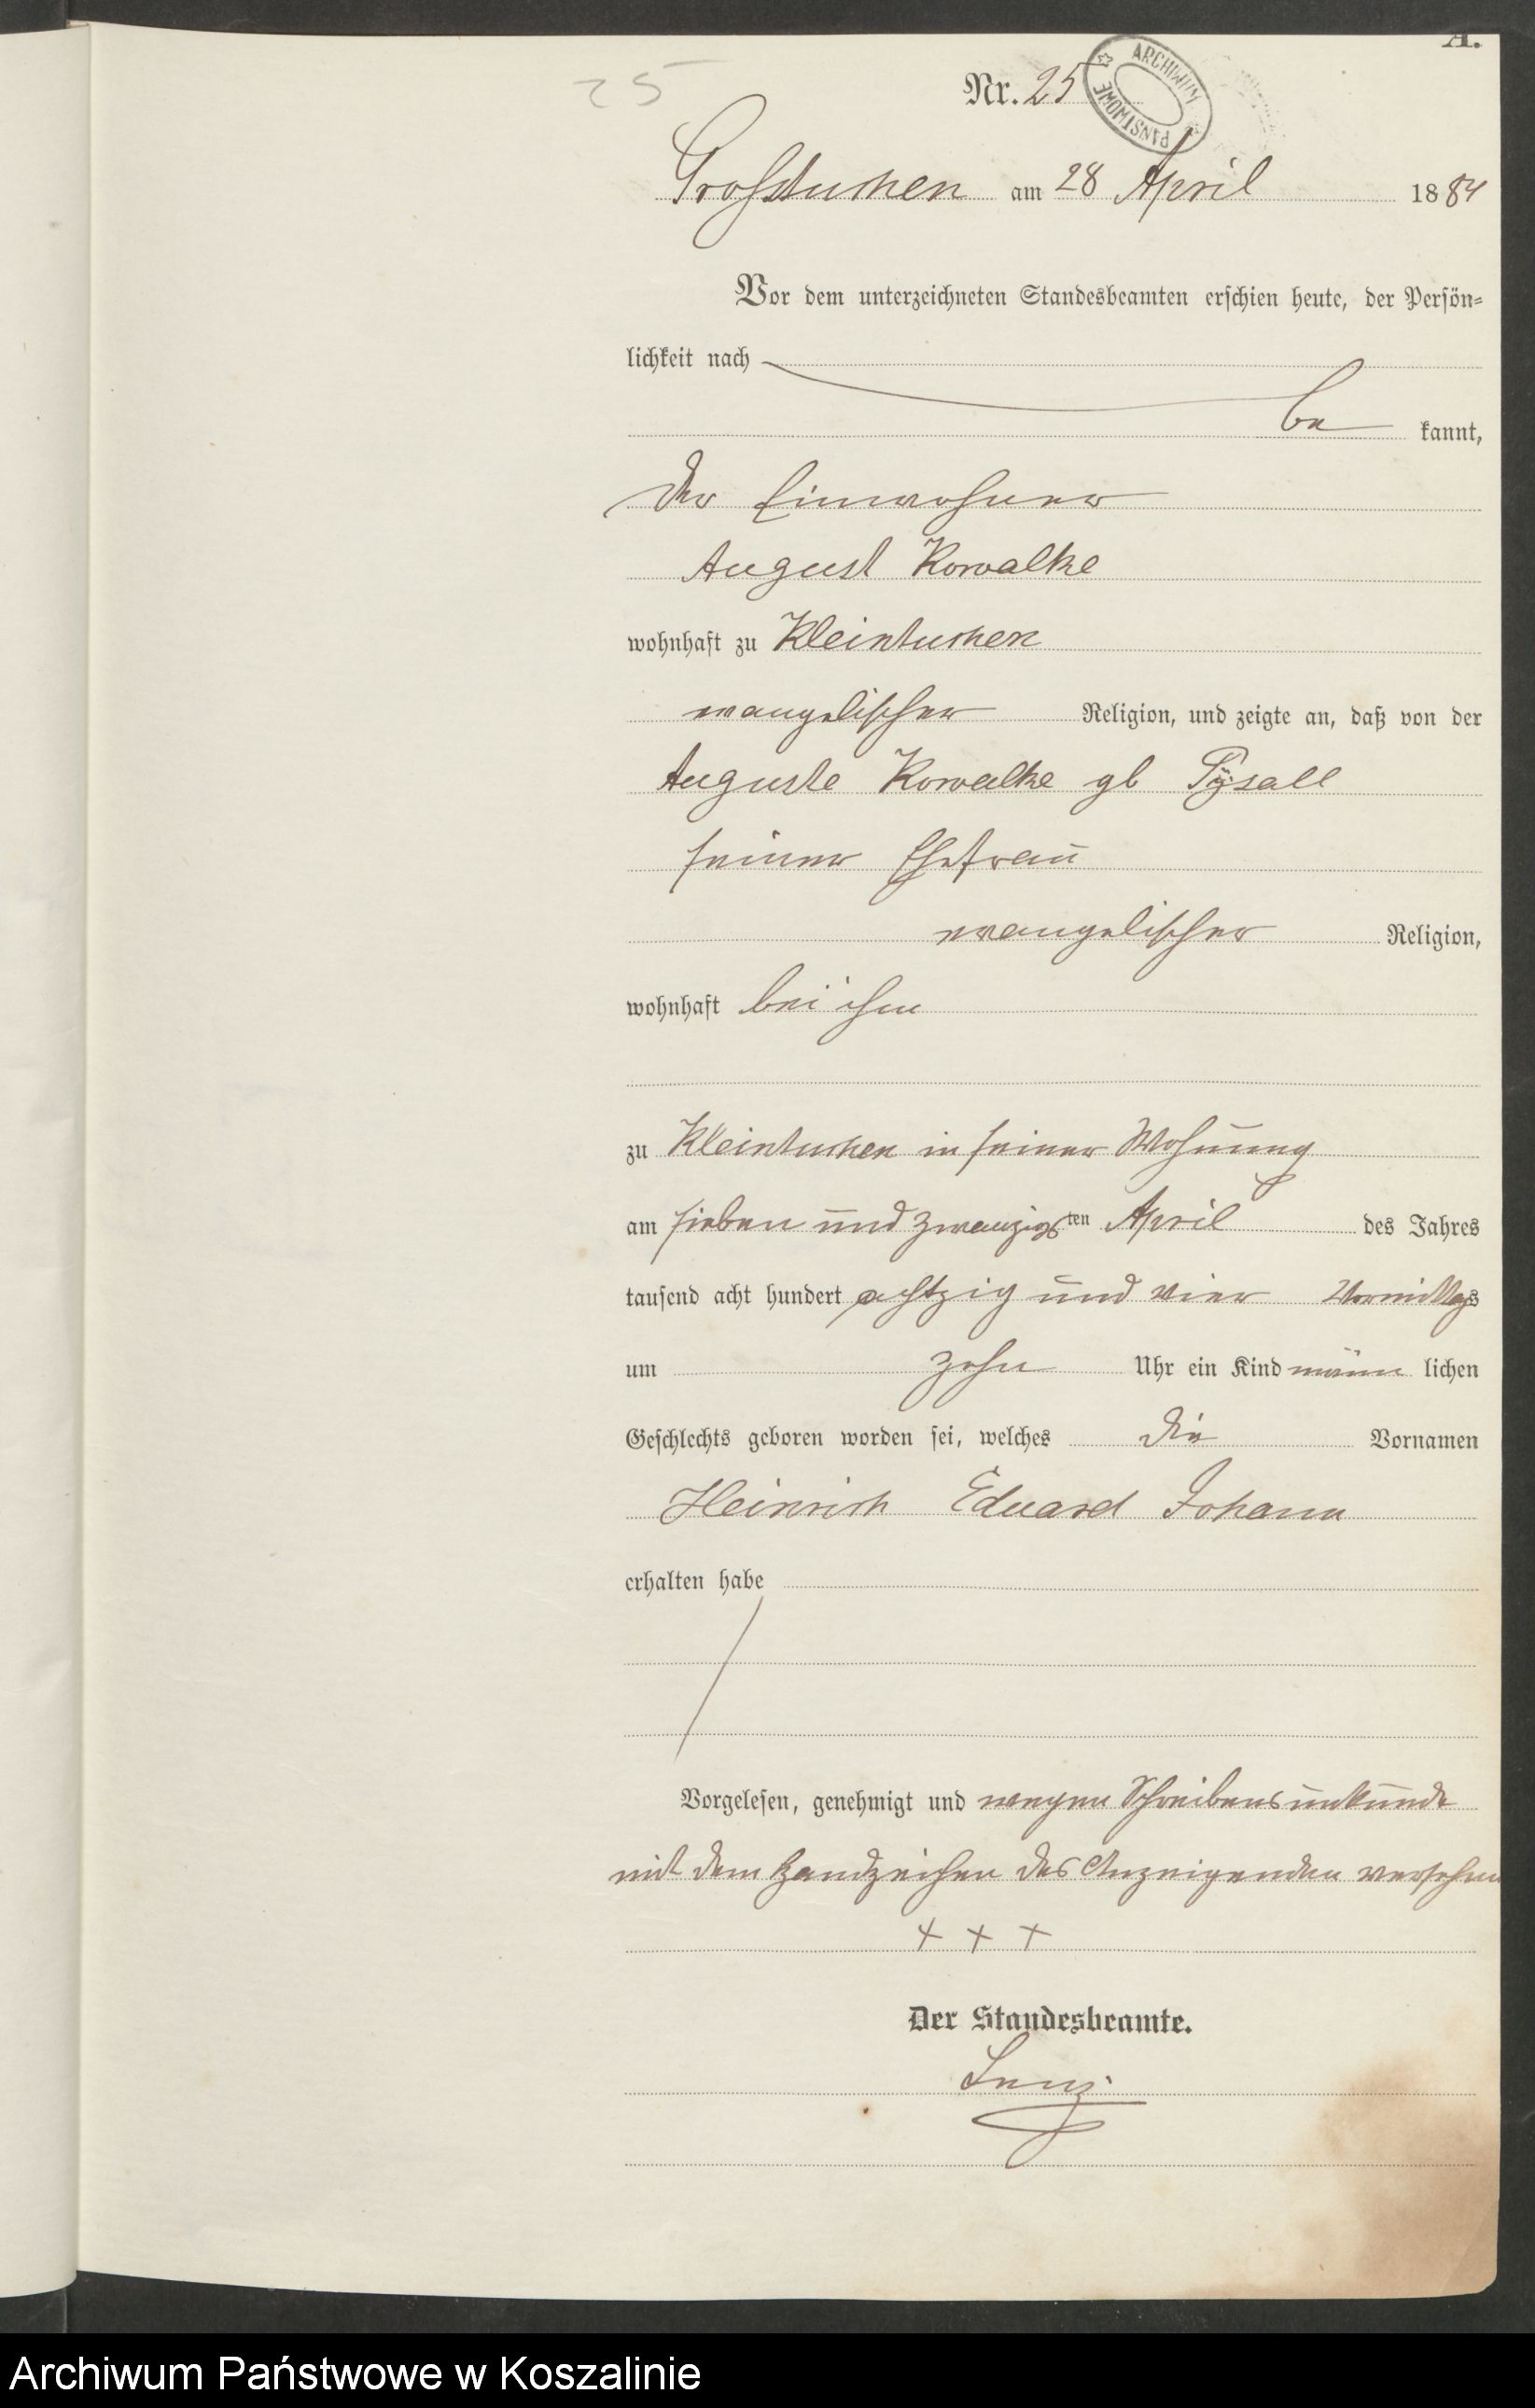 A.
25
Nr. 25
ARCHIWUM PAŃSTWOWE
Großtuchen am 28 April 1884
Vor dem unterzeichneten Standesbeamten erschien heute, der Persön-
lichkeit nach
be kannt,
der Einwohner
August Kowalke
wohnhaft zu Kleintuchen
evangelischer Religion, und zeigte an, daß von der
Auguste Kowalke gb Pÿsall
seiner Ehefrau
evangelischer Religion,
wohnhaft bei ihm
zu Kleintuchen in seiner Wohnung
am sieben und zwanzigsten April des Jahres
tausend acht hundert achtzig und vier Vormittags
um zehn Uhr ein Kind männ lichen
Geschlechts geboren worden sei, welches die Vornamen
Heinrich Eduard Johann
erhalten habe
Vorgelesen, genehmigt und wegen Schreibensunkunde
mit dem Handzeichen des Anzeigenden versehen
+ + +
Der Standesbeamte.
Lenz.
Archiwum Państwowe w Koszalinie